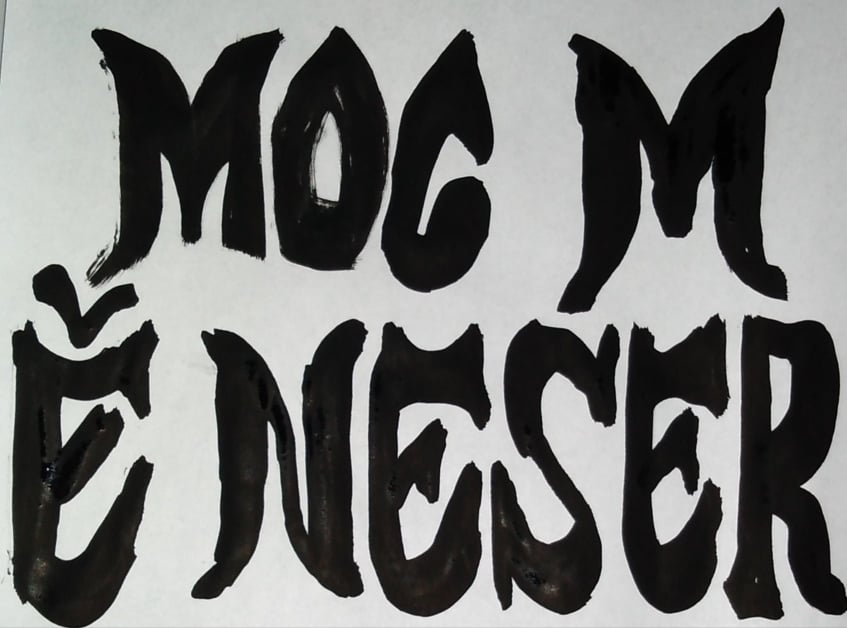 MOC M
Ě NESER